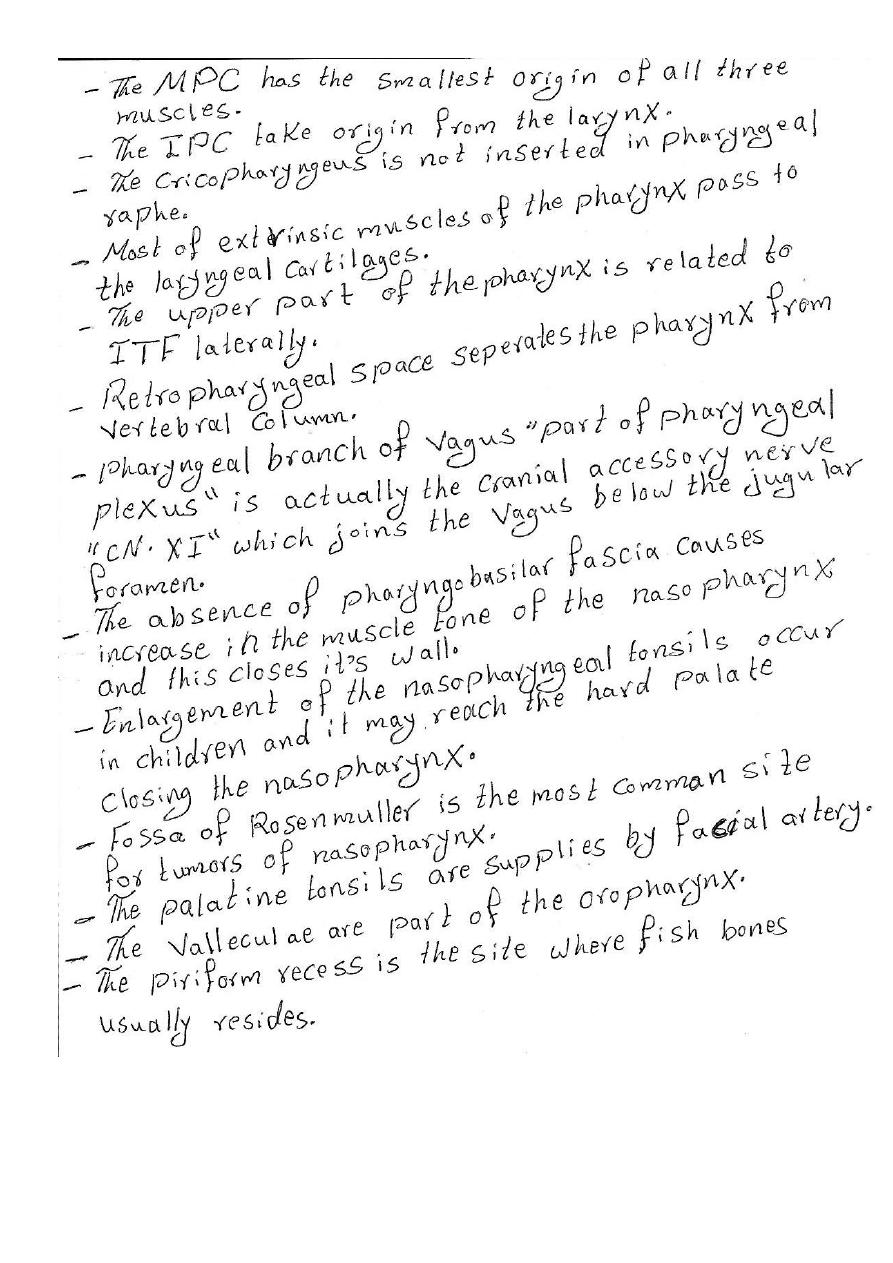 - The MPC has the smallest origin of all three
muscles.
- The IPC take origin from the larynx.
- The Cricopharyngeus is not inserted in pharyngeal
raphe.
- Most of extrinsic muscles of the pharynx pass to
the laryngeal cartilages.
- The upper part of the pharynx is related to
ITF laterally.
- Retropharyngeal space seperates the pharynx from
vertebral column.
- pharyngeal branch of vagus "part of pharyngeal
plexus" is actually the cranial accessory nerve
"CN. XI" which joins the vagus below the jugular
foramen.
- The absence of pharyngobasilar fascia causes
increase in the muscle tone of the nasopharynx
and this closes it's wall.
- Enlargement of the nasopharyngeal tonsils occur
in children and it may reach the hard palate
closing the nasopharynx.
- Fossa of Rosenmuller is the most common site
for tumors of nasopharynx.
- The palatine tonsils are supplies by facial artery.
- The Valleculae are part of the oropharynx.
- The piriform recess is the site where fish bones
usually resides.